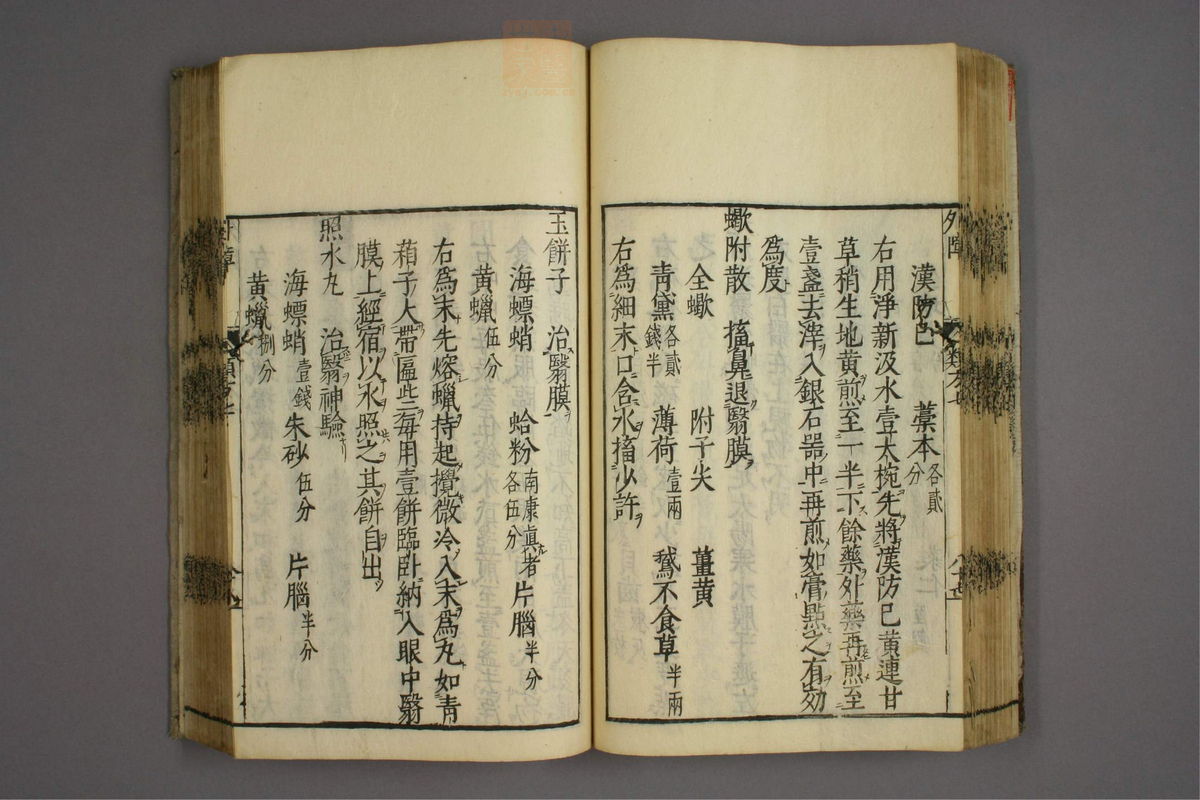 漢防己 藁本各貳分
右用淨新汲水壹大椀先將漢防己黃連甘
草稍生地黃煎至一半下餘藥外藥再煎至
壹盞去滓入銀石器中再煎如膏點之有効
爲度
蠍附散 搐鼻退翳膜
全蠍 附子尖 薑黃
靑黛各貳錢半 薄荷壹兩 鵞不食草半兩
右爲細末口含水搐少許
玉餅子 治翳膜
海螵蛸 蛤粉南康眞者各伍分 片腦半分
黃蠟伍分
右爲末先熔蠟持起攪微冷入末爲丸如靑
葙子大帶匾些每用壹餅臨卧納入眼中翳
膜上經宿以水照之其餅自出
照水丸 治翳神驗
海螵蛸壹錢 朱砂伍分 片腦半分
黃蠟捌分